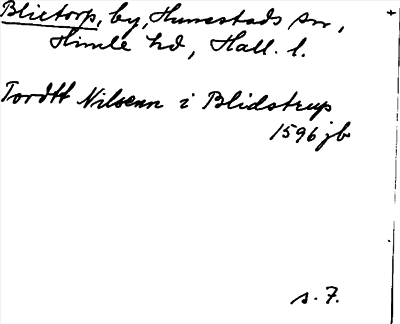 Blietorp, by, Hunestads sn,
Himle hd, Hall. l.
Tordtt Nilsenn i Blidstrup
1596 jb
s. 7.